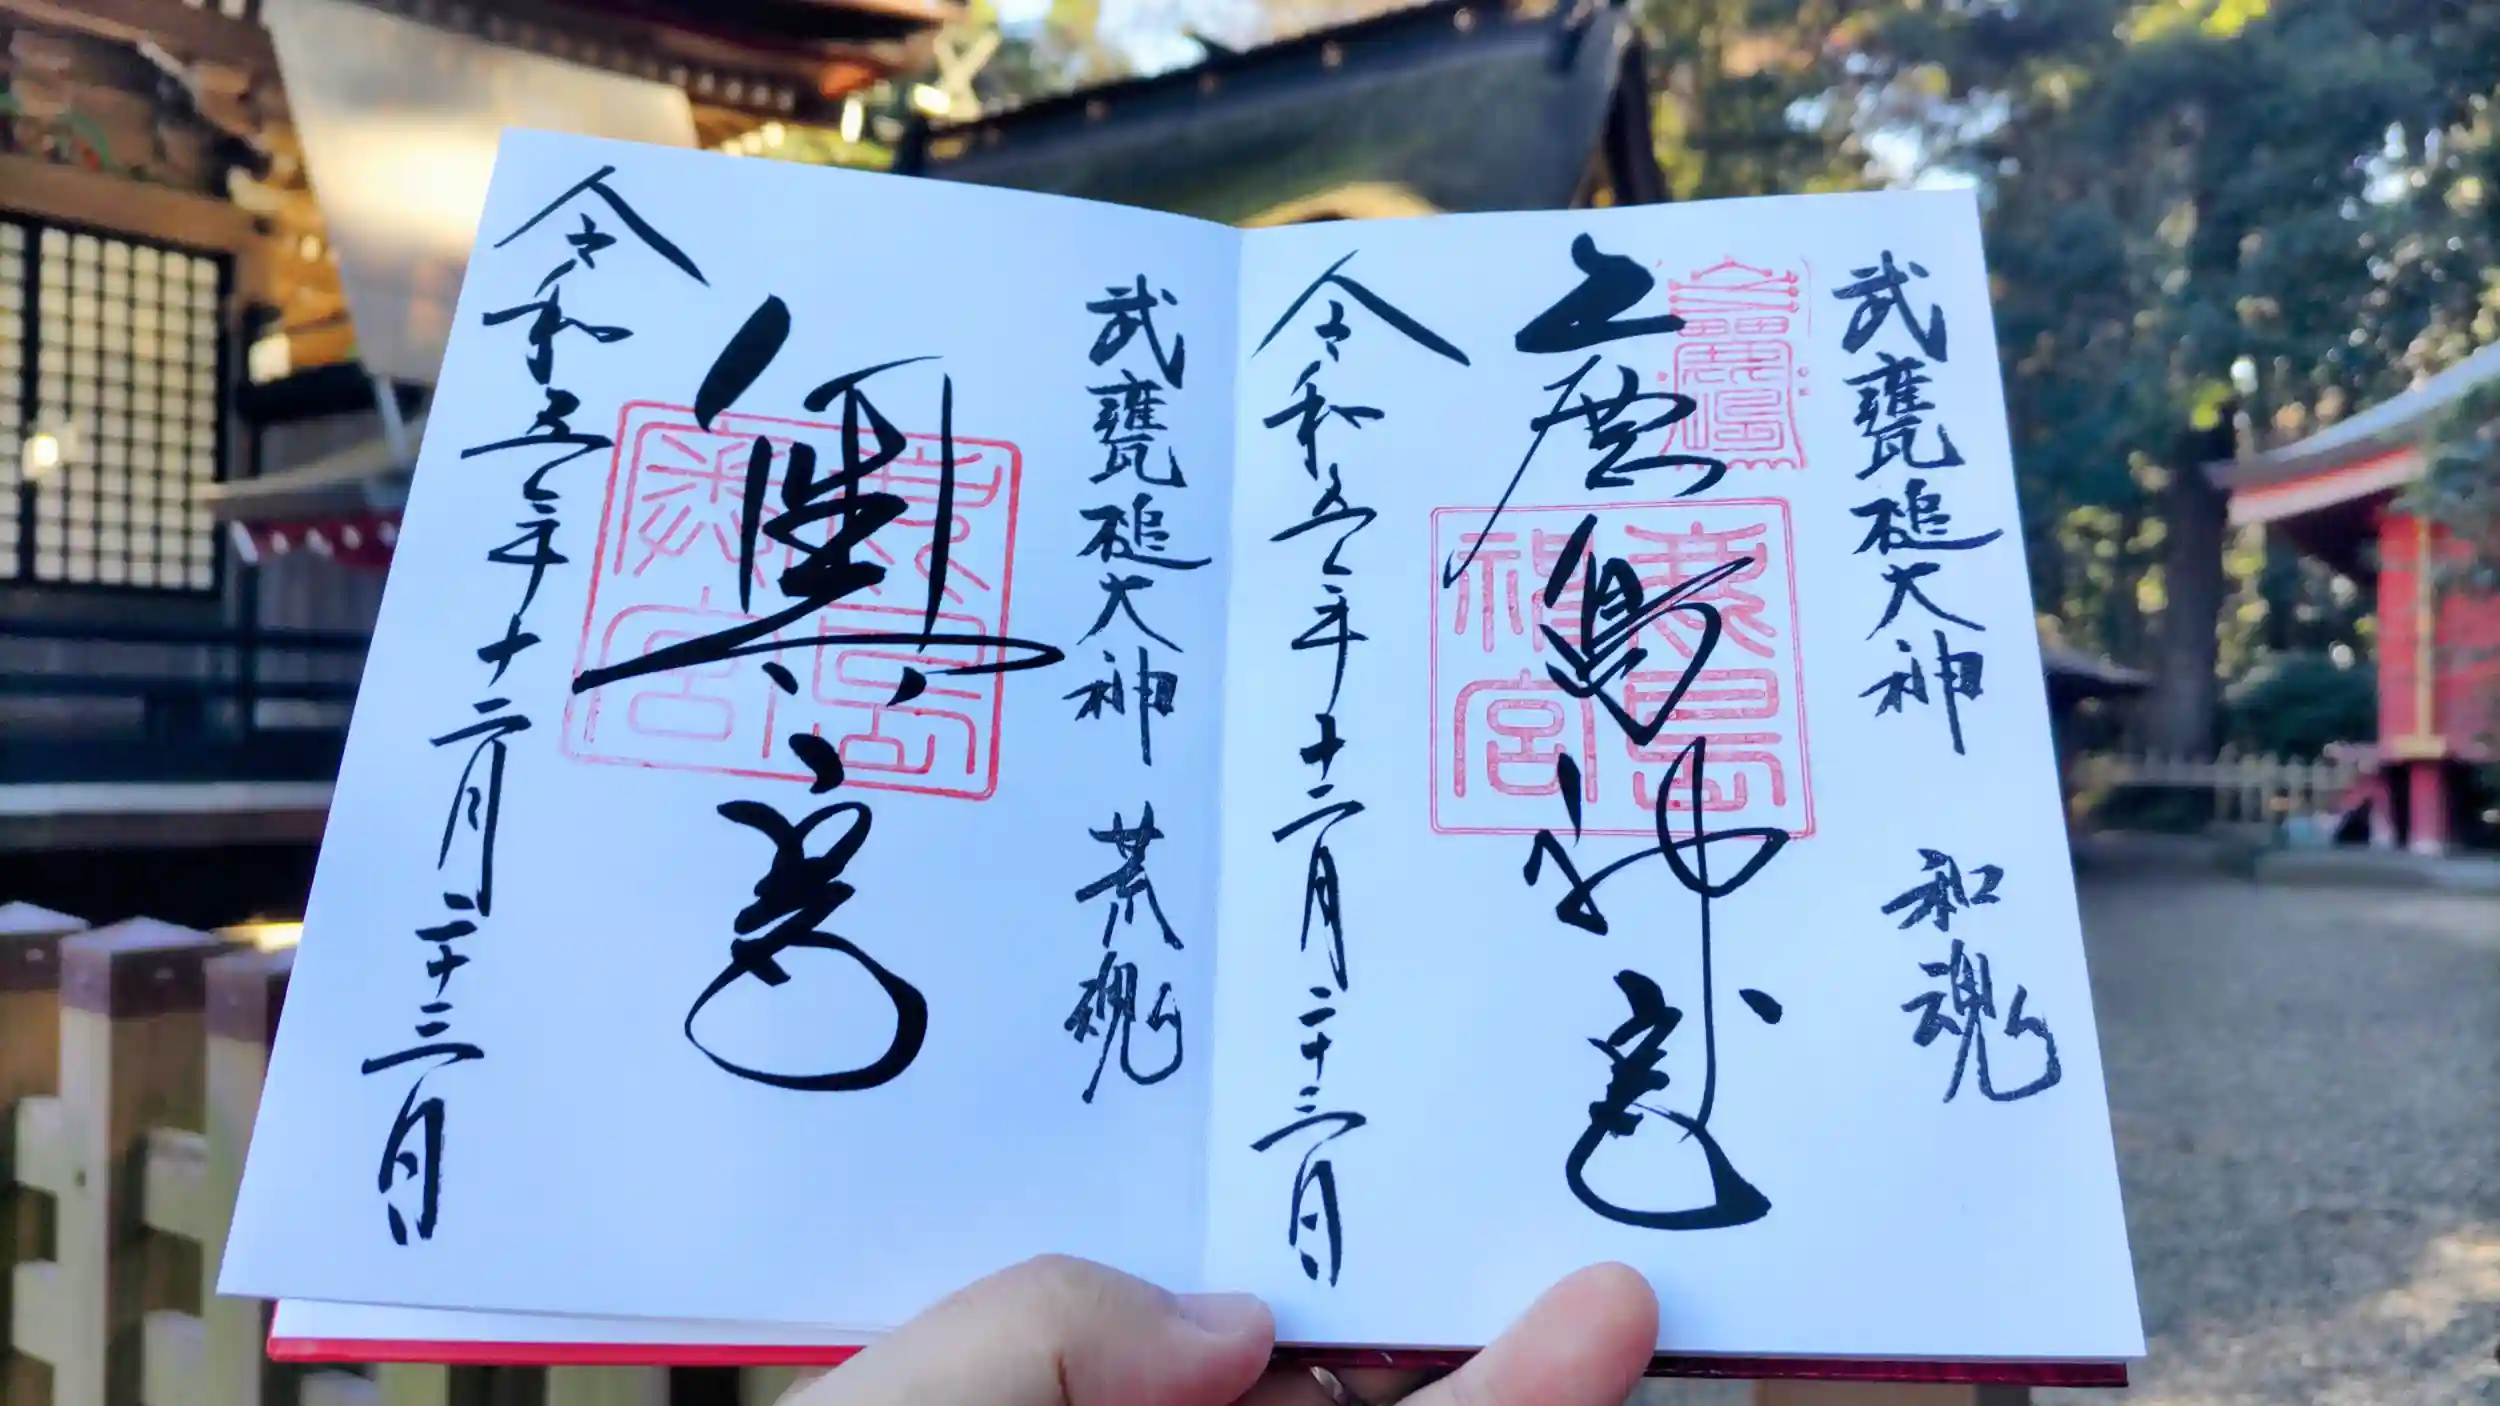 武甕槌大神 和魂
鹿島神宮
鹿島神宮
令和五年十二月二十三日
武甕槌大神 荒魂
奥宮
鹿島奥宮
令和五年十二月二十三日